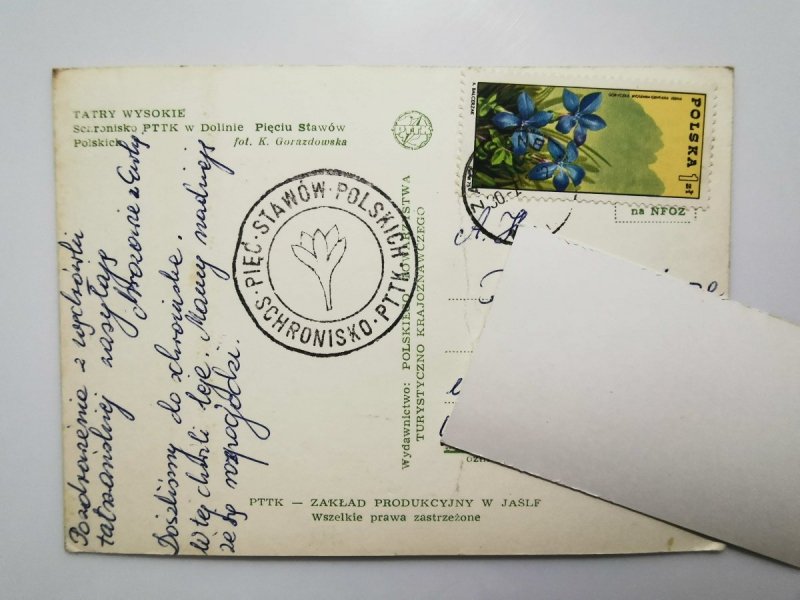 TATRY WYSOKIE
Schronisko PTTK w Dolinie Pięciu Stawów
Polskich fot. K. Gorazdowska
Pozdrowienia z wędrówki
tatrzańskiej zasyłają
Doszliśmy do schroniska.
W tej chwili leje. Mamy nadzieję
że się rozpogodzi.
PIĘĆ STAWÓW POLSKICH
SCHRONISKO PTTK
PTTK
Wydawnictwo: POLSKIEGO TOWARZYSTWA
TURYSTYCZNO KRAJOZNAWCZEGO
POLSKA 1 zł
na NFOZ
PTTK — ZAKŁAD PRODUKCYJNY W JAŚLE
Wszelkie prawa zastrzeżone